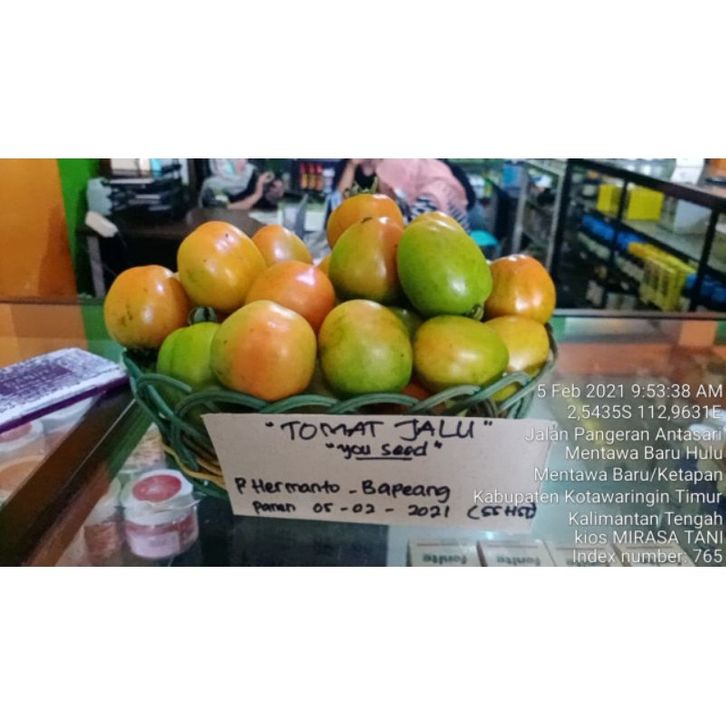 "TOMAT JALU"
"you seed"
P Hermanto - Bapeang
Panen 05-02-2021 (55 HST)
5 Feb 2021 9:53:38 AM
2,5435S 112,9631E
Jalan Pangeran Antasari
Mentawa Baru Hulu
Mentawa Baru/Ketapan
Kabupaten Kotawaringin Timur
Kalimantan Tengah
kios MIRASA TANI
Index number: 765